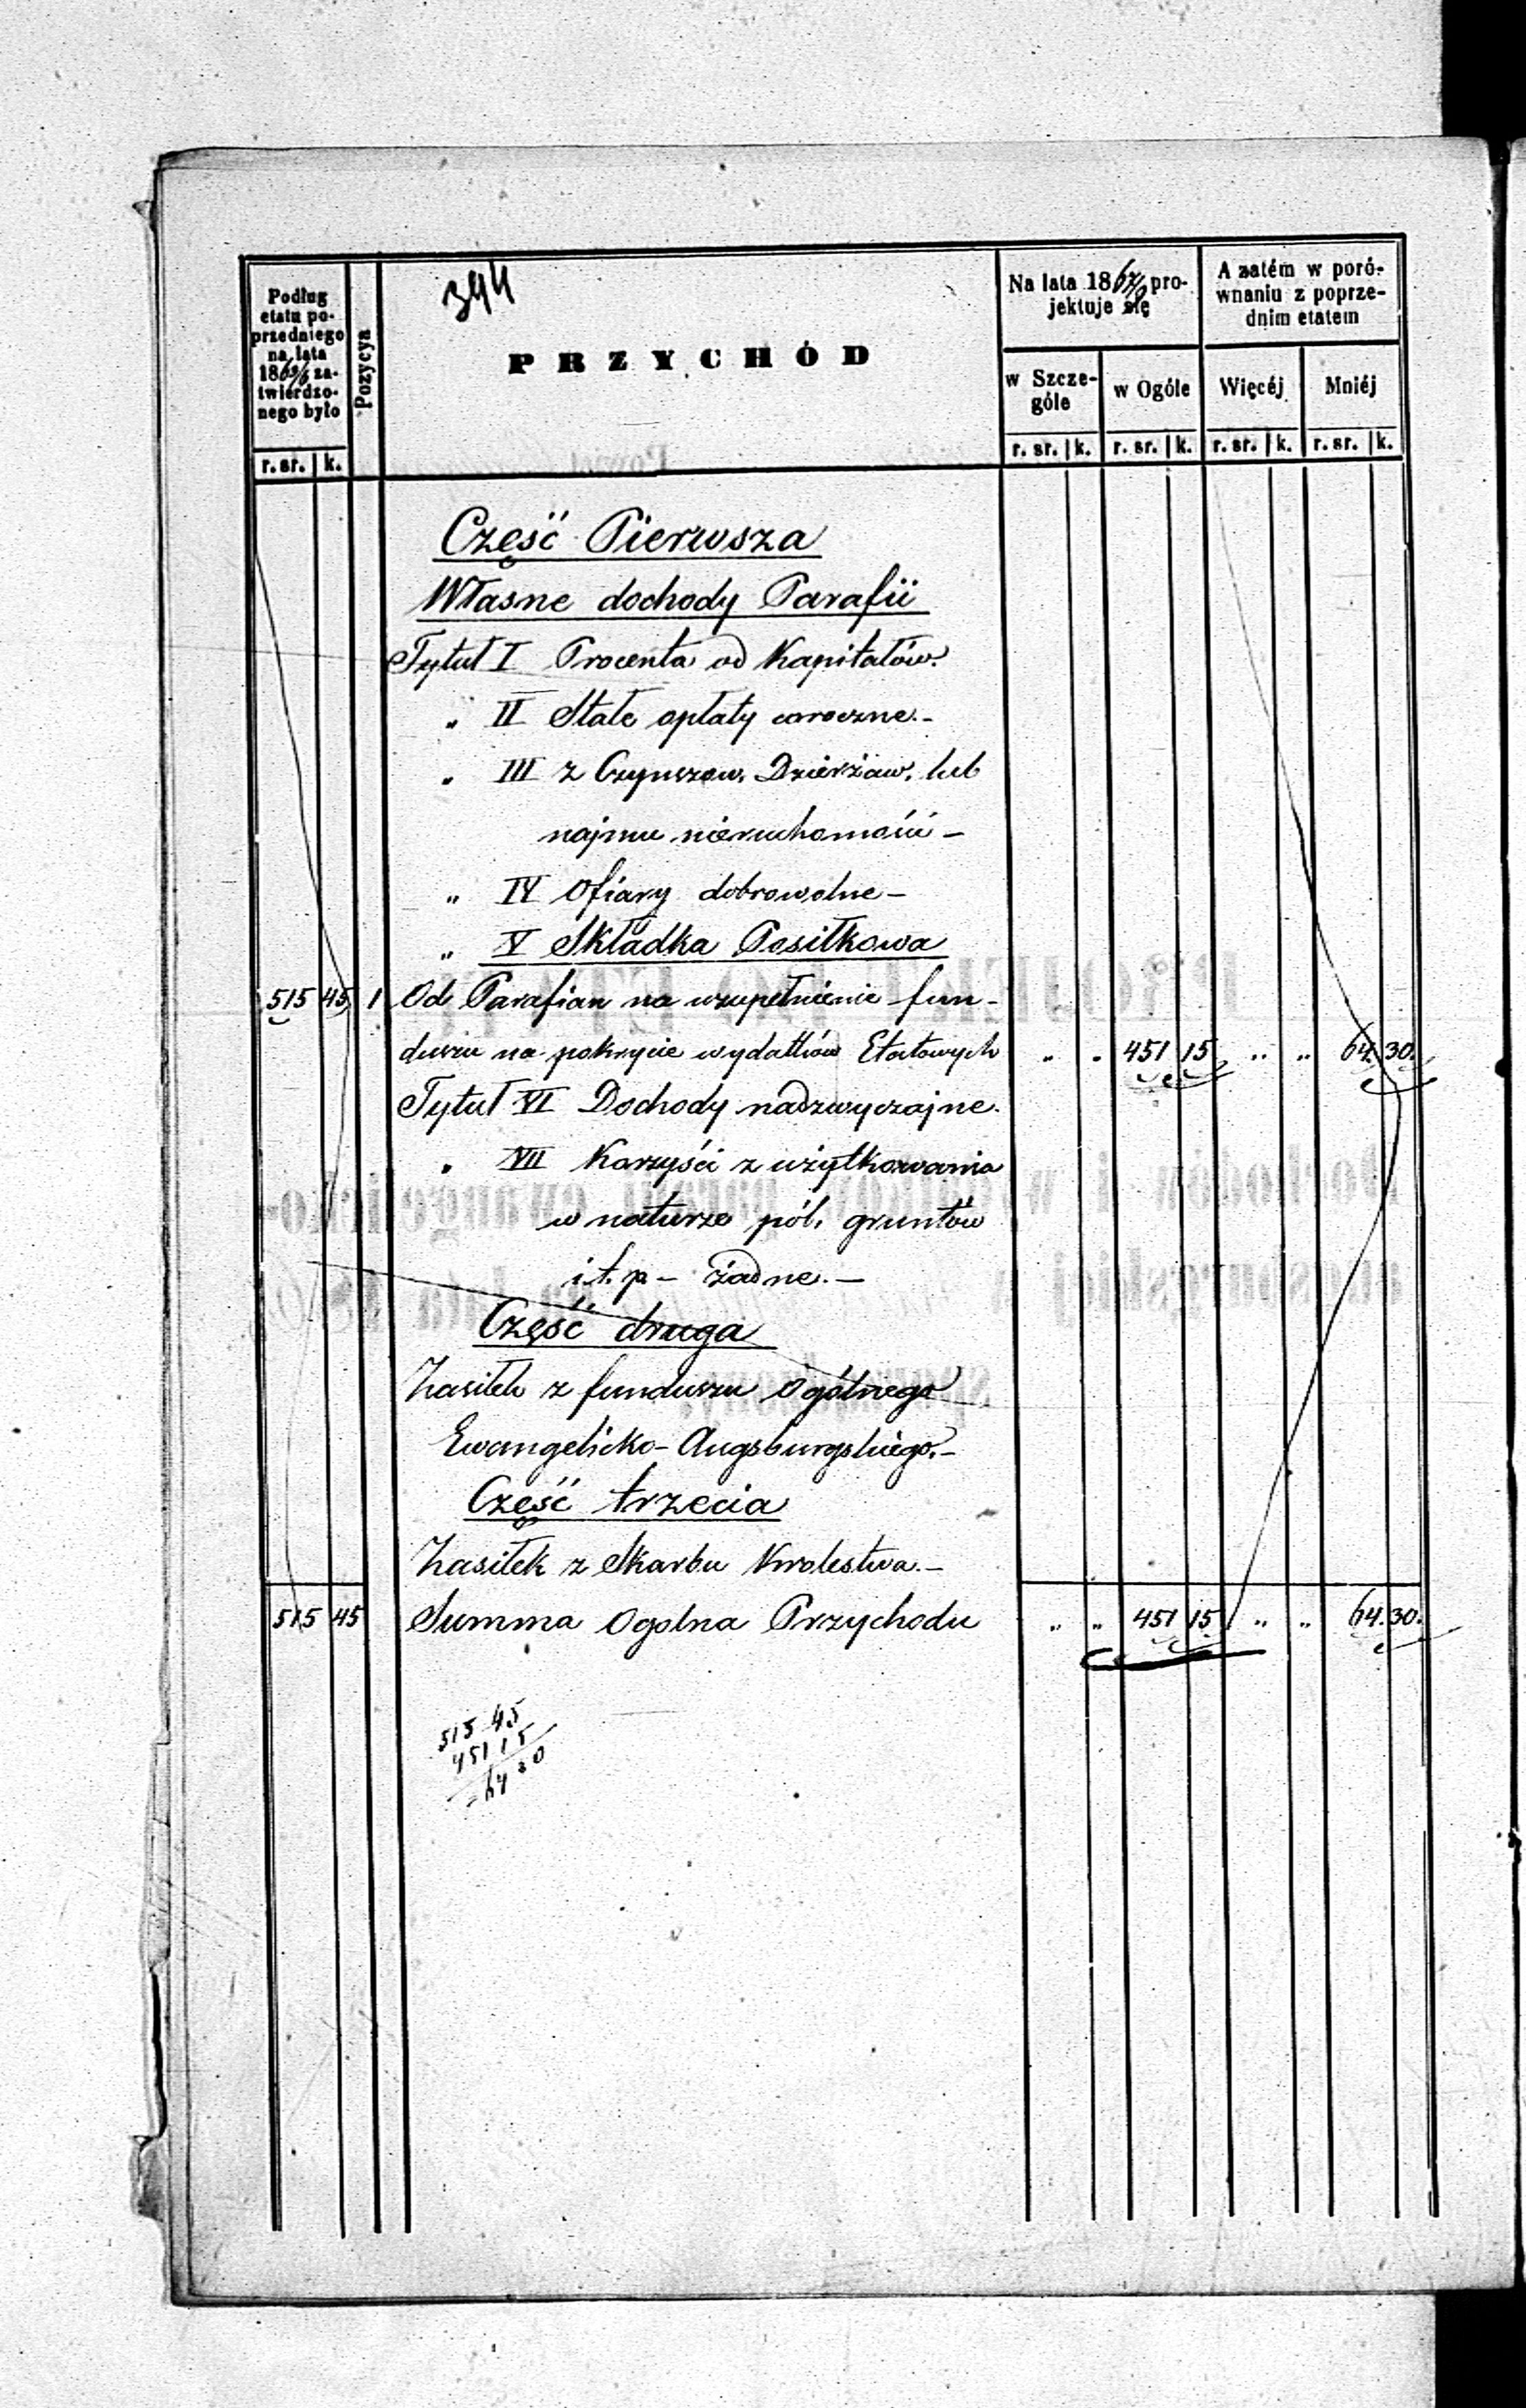 394
Podług
etatu po-
przedniego
na lata
18 za-
twierdzo-
nego było
r. sr. k.
Pozycya
PRZYCHÓD
Na lata 18 pro-
jektuje się
w Szcze-
góle
r. sr. k.
w Ogóle
r. sr. k.
A zatém w poró-
wnaniu z poprze-
dnim etatem
Więcéj
r. sr. k.
Mniéj
r. sr. k.
Część Pierwsza
Własne dochody Parafii
Tytuł I Procenta od Kapitałów.
„ II Stałe opłaty coroczne.-
„ III z Czynszow. Dzierżaw. lub
najmu nieruchomości -
„ IV Ofiary dobrowolne -
„ V Składka Posiłkowa
515 45 1 Od Parafian na uzupełnienie fun-
duszu na pokrycie wydatków Etatowych „ „ 451 15 „ „ 64. 30.
Tytuł VI Dochody nadzwyczajne.
„ VII Korzyści z użytkowania
w naturze pól, gruntów
i.t.p - żadne. -
Część druga
Zasiłek z funduszu Ogólnego
Ewangelicko-Augsburgskiego.-
Część trzecia
Zasiłek z Skarbu Krolestwa.-
515 45 Summa Ogolna Przychodu „ „ 451 15 „ „ 64. 30.
515 45
451 15
64 30